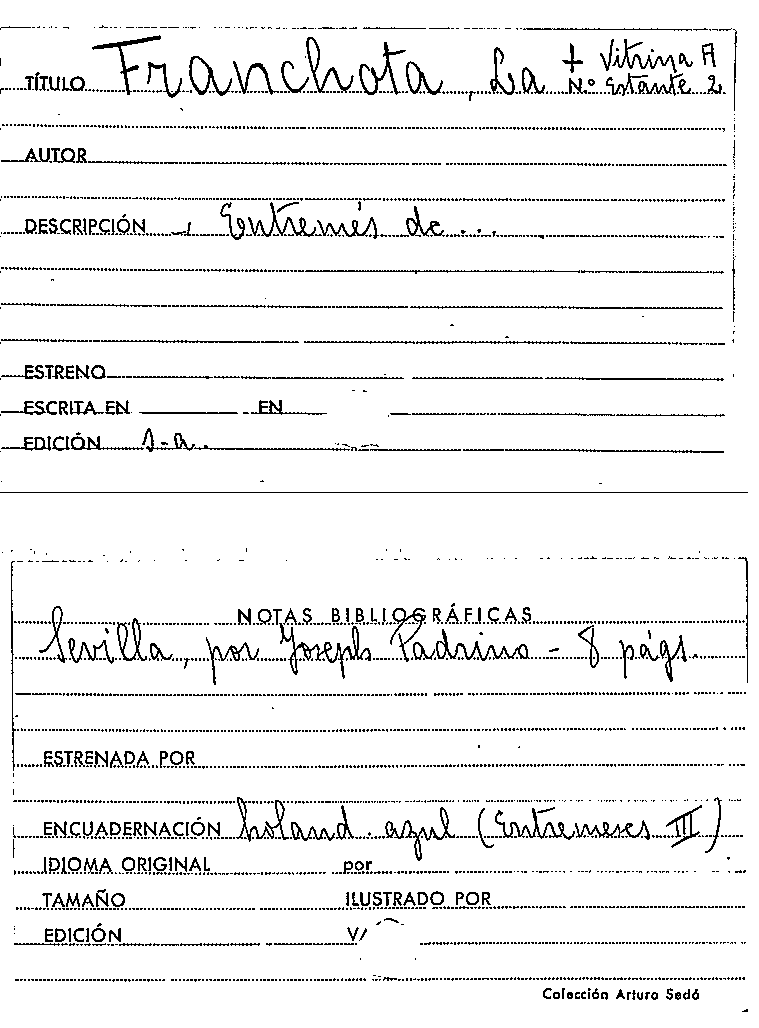 TÍTULO Franchota, La + Vitrina A
Nº Estante 2
AUTOR
DESCRIPCIÓN Entremés de ...
ESTRENO
ESCRITA EN EN
EDICIÓN s-a.
NOTAS BIBLIOGRÁFICAS
Sevilla, por Joseph Padrino - 8 págs.
ESTRENADA POR
ENCUADERNACIÓN holand. azul (Entremeses III)
IDIOMA ORIGINAL por
TAMAÑO ILUSTRADO POR
EDICIÓN V/
Colección Arturo Sedó